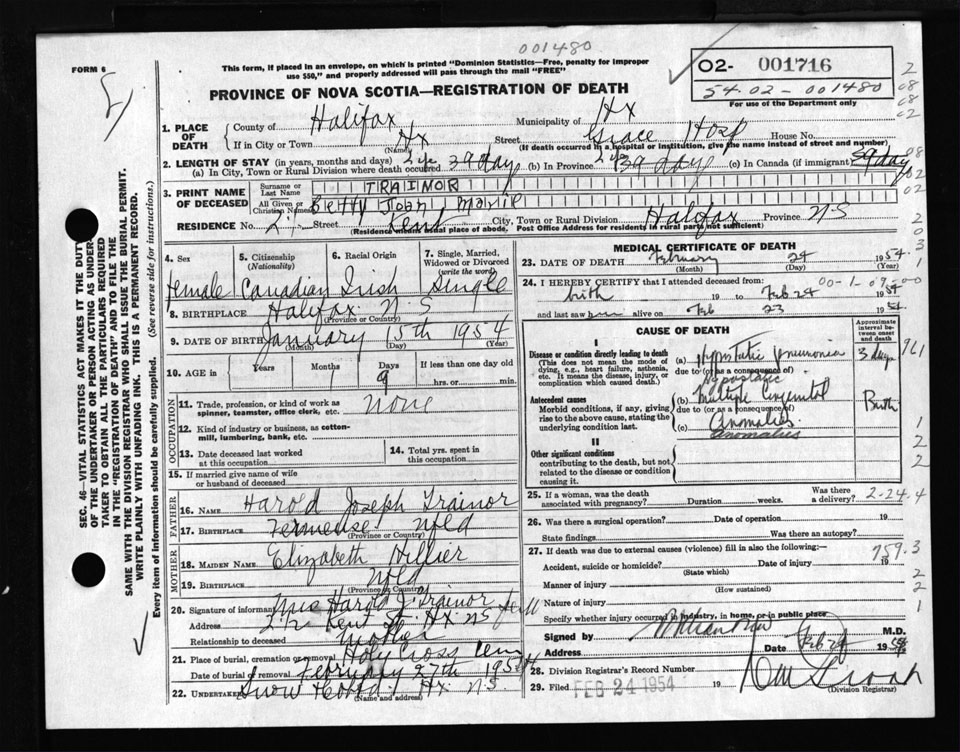 001480
FORM 6
This form, if placed in an envelope, on which is printed "Dominion Statistics—Free, penalty for improper
use $50," and properly addressed will pass through the mail "FREE"
02- 001716
54-02-001480
For use of the Department only
PROVINCE OF NOVA SCOTIA—REGISTRATION OF DEATH
1. PLACE OF DEATH
County of Halifax Municipality of Hx
If in City or Town Hx Street Grace Hosp House No.
(Name) (If death occurred in a hospital or institution, give the name instead of street and number)
2. LENGTH OF STAY (in years, months and days)
(a) In City, Town or Rural Division where death occurred 39 days (b) In Province 39 days (c) In Canada (if immigrant) 39 days
3. PRINT NAME OF DECEASED
Surname or Last Name TRAINOR
All Given or Christian Names Betty Joan Marie
RESIDENCE No. 2½ Street Kent City, Town or Rural Division Halifax Province N-S
(Residence means usual place of abode. Post Office Address for residents in rural parts not sufficient)
4. Sex female
5. Citizenship (Nationality) Canadian
6. Racial Origin Irish
7. Single, Married, Widowed or Divorced (write the word) Single
8. BIRTHPLACE Halifax N-S
(Province or Country)
9. DATE OF BIRTH January 15th 1954
(Month) (Day) (Year)
10. AGE in Years Months 1 Days 9 If less than one day
hrs. or min.
OCCUPATION
11. Trade, profession, or kind of work as spinner, teamster, office clerk, etc. None
12. Kind of industry or business, as cotton-mill, lumbering, bank, etc.
13. Date deceased last worked at this occupation
14. Total yrs. spent in this occupation
15. If married give name of wife or husband of deceased
FATHER
16. NAME Harold Joseph Trainor
17. BIRTHPLACE Fermeuse Nfld
(Province or Country)
MOTHER
18. MAIDEN NAME Elizabeth Hillier
19. BIRTHPLACE Nfld
(Province or Country)
20. Signature of informant Mrs Harold J. Trainor
Address 2½ Kent St. Hx NS
Relationship to deceased Mother
21. Place of burial, cremation or removal Holy Cross Cem
Date of burial or removal February 27th 1954
22. Undertaker Snow Hx N.S.
(Name and address)
MEDICAL CERTIFICATE OF DEATH
23. DATE OF DEATH February 24 1954
(Month) (Day) (Year)
24. I HEREBY CERTIFY that I attended deceased from:
birth 19 to Feb 24 1954
and last saw her alive on Feb 23 1954
CAUSE OF DEATH
Approximate interval between onset and death
I
Disease or condition directly leading to death (a) Hypostatic pneumonia 3 days
(This does not mean the mode of dying, e.g., heart failure, asthenia, etc. It means the disease, injury, or complication which caused death.)
due to (or as a consequence of)
Hypostatic
Antecedent causes (b) Multiple Congenital Birth
Morbid conditions, if any, giving rise to the above cause, stating the underlying condition last.
due to (or as a consequence of)
(c) Anomalies
anomalies
II
Other significant conditions
contributing to the death, but not related to the disease or condition causing it
25. If a woman, was the death associated with pregnancy? Duration weeks. Was there a delivery?
2-24.4
26. Was there a surgical operation? Date of operation 19
State findings Was there an autopsy?
27. If death was due to external causes (violence) fill in also the following:—
Accident, suicide or homicide? Date of injury 19
(State which)
759.3
Manner of injury
(How sustained)
Nature of injury
Specify whether injury occurred in industry, in home, or in public place
Signed by M.D.
Address Feb 24 1954
28. Division Registrar's Record Number
29. Filed FEB 24 1954 19
(Division Registrar)
SEC. 46—VITAL STATISTICS ACT MAKES IT THE DUTY
OF THE UNDERTAKER OR PERSON ACTING AS UNDER-
TAKER TO OBTAIN ALL THE PARTICULARS REQUIRED
IN THE "REGISTRATION OF DEATH" AND TO FILE THE
SAME WITH THE DIVISION REGISTRAR WHO SHALL ISSUE THE BURIAL PERMIT.
WRITE PLAINLY WITH UNFADING INK. THIS IS A PERMANENT RECORD.
Every item of information should be carefully supplied. (See reverse side for instructions.)